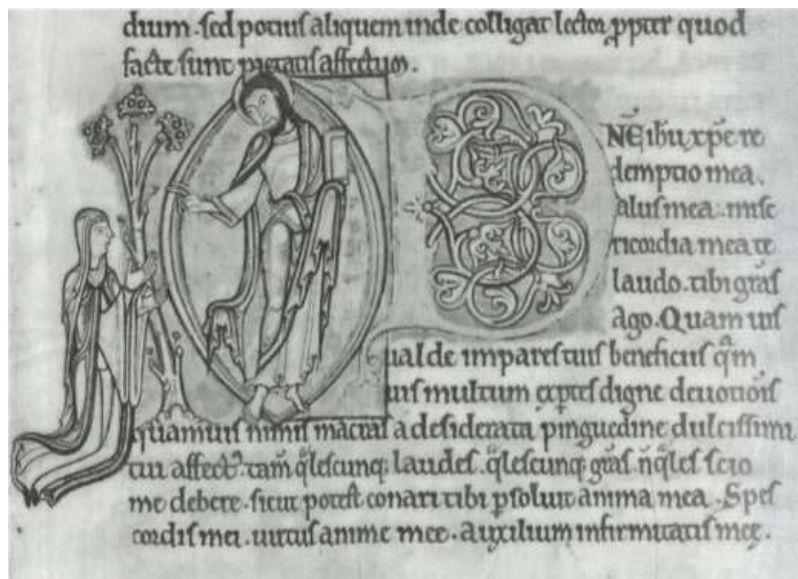 dium. sed potius aliquem inde colligat lector, ppter quod
facte sunt pietatis affectum.
D NE ihu xp̄e re
demptio mea.
salus mea. mise
ricordia mea te
laudo. tibi grās
ago. Quam uis
ualde impares tuis beneficiis q̄m
uis multum exp̄tes digne deuotiōis
quamuis nimis macras a desiderata pinguedine dulcissimi
tui affect᷒. tam̄ q̄lescunq; laudes. q̄lescunq; grās n̄ q̄les scio
me debere. sicut potest conari tibi psoluit anima mea. Spes
cordis mei. uirtus anime mee. auxilium infirmitatis mee.